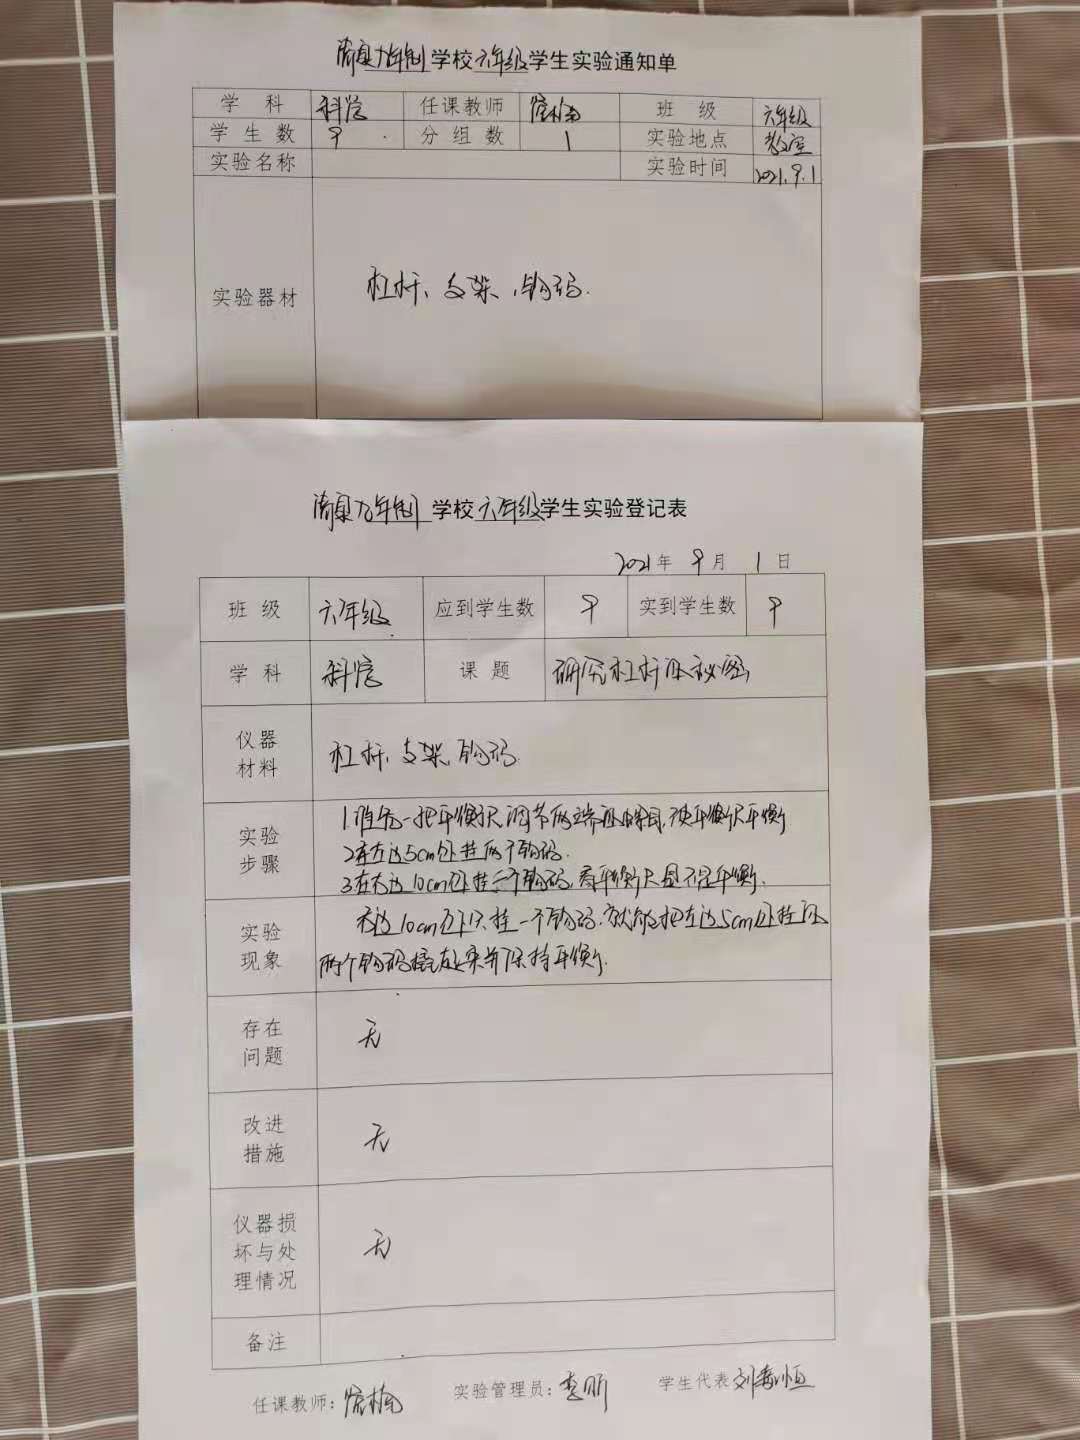 九年制学校六年级学生实验通知单
学 科 科学 任课教师 班 级 六年级
学 生 数 9 分 组 数 1 实验地点 教室
实验名称 实验时间 2021.9.1
实验器材 杠杆、支架、钩码.
九年制学校六年级学生实验登记表
2021年 9月 1日
班 级 六年级 应到学生数 9 实到学生数 9
学 科 科学 课 题 研究杠杆的秘密
仪器
材料
杠杆、支架、钩码.
实验
步骤
1.准备一把平衡尺调节两端,使平衡尺平衡
2.在左边5cm处挂两个钩码.
3.在右边10cm处挂一个钩码,看平衡尺是不是平衡.
实验
现象
右边10cm处只挂一个钩码.就能把左边5cm处挂的
两个钩码撬起来并保持平衡.
存在
问题
无
改进
措施
无
仪器损
坏与处
理情况
无
备注
任课教师: 实验管理员:李昕 学生代表